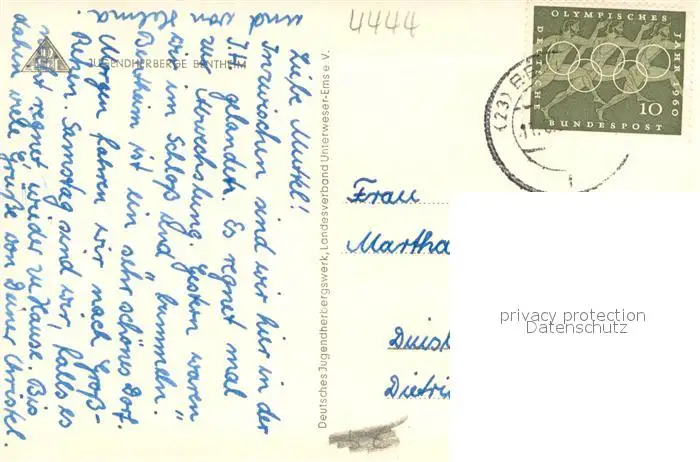 4444
JUGENDHERBERGE BENTHEIM
Liebe Muttel!
Inzwischen sind wir hier in der
J.H. gelandet. Es regnet mal
zur Abwechslung. Gestern waren
wir im Schloß und bummeln.
Bentheim ist ein sehr schönes Dorf.
Morgen fahren wir nach Groß-
Samstag sind wir, falls es
nicht regnet wieder zu Hause. Bis
dahin viele Grüße von Deiner Christel.
und von Helma
Deutsches Jugendherbergswerk, Landesverband Unterweser-Ems e.V.
OLYMPISCHES
JAHR 1960
DEUTSCHE
BUNDESPOST
10
(23) BE
Frau
Martha
Duisb
Dietri
privacy protection
Datenschutz